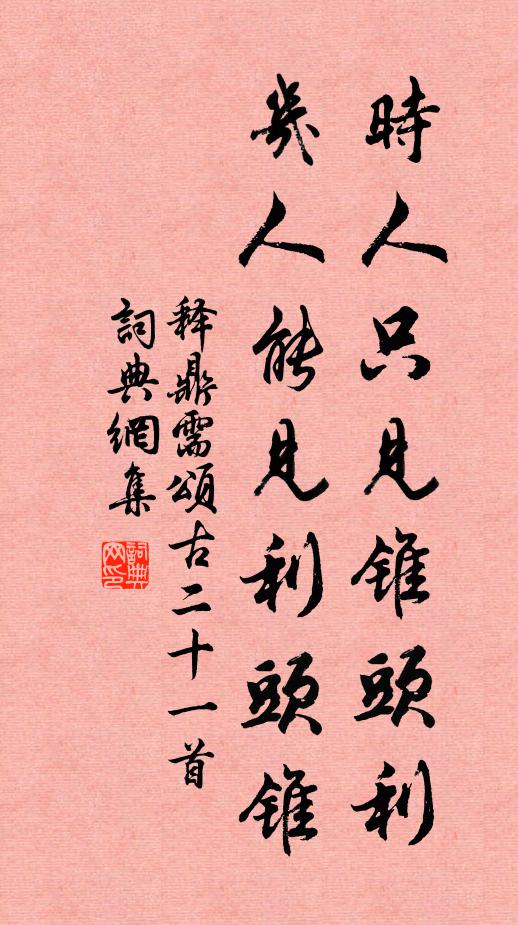 時人只見錐頭利
幾人能見利頭錐
释鼎需頌古二十一首
詞典網集
詞典网印